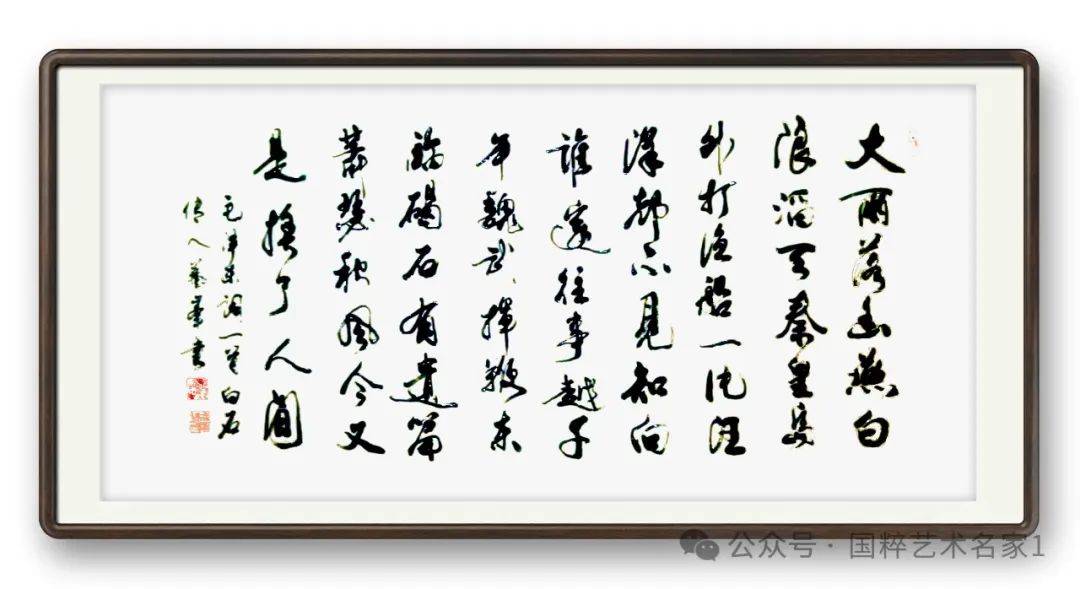 大雨落幽燕白
浪滔天秦皇島
外打漁船一片汪
洋都不見知向
誰邊往事越千
年魏武揮鞭東
臨碣石有遺篇
蕭瑟秋風今又
是換了人間
毛澤東詞一首 白石
傳人書
公众号 · 国粹艺术名家1